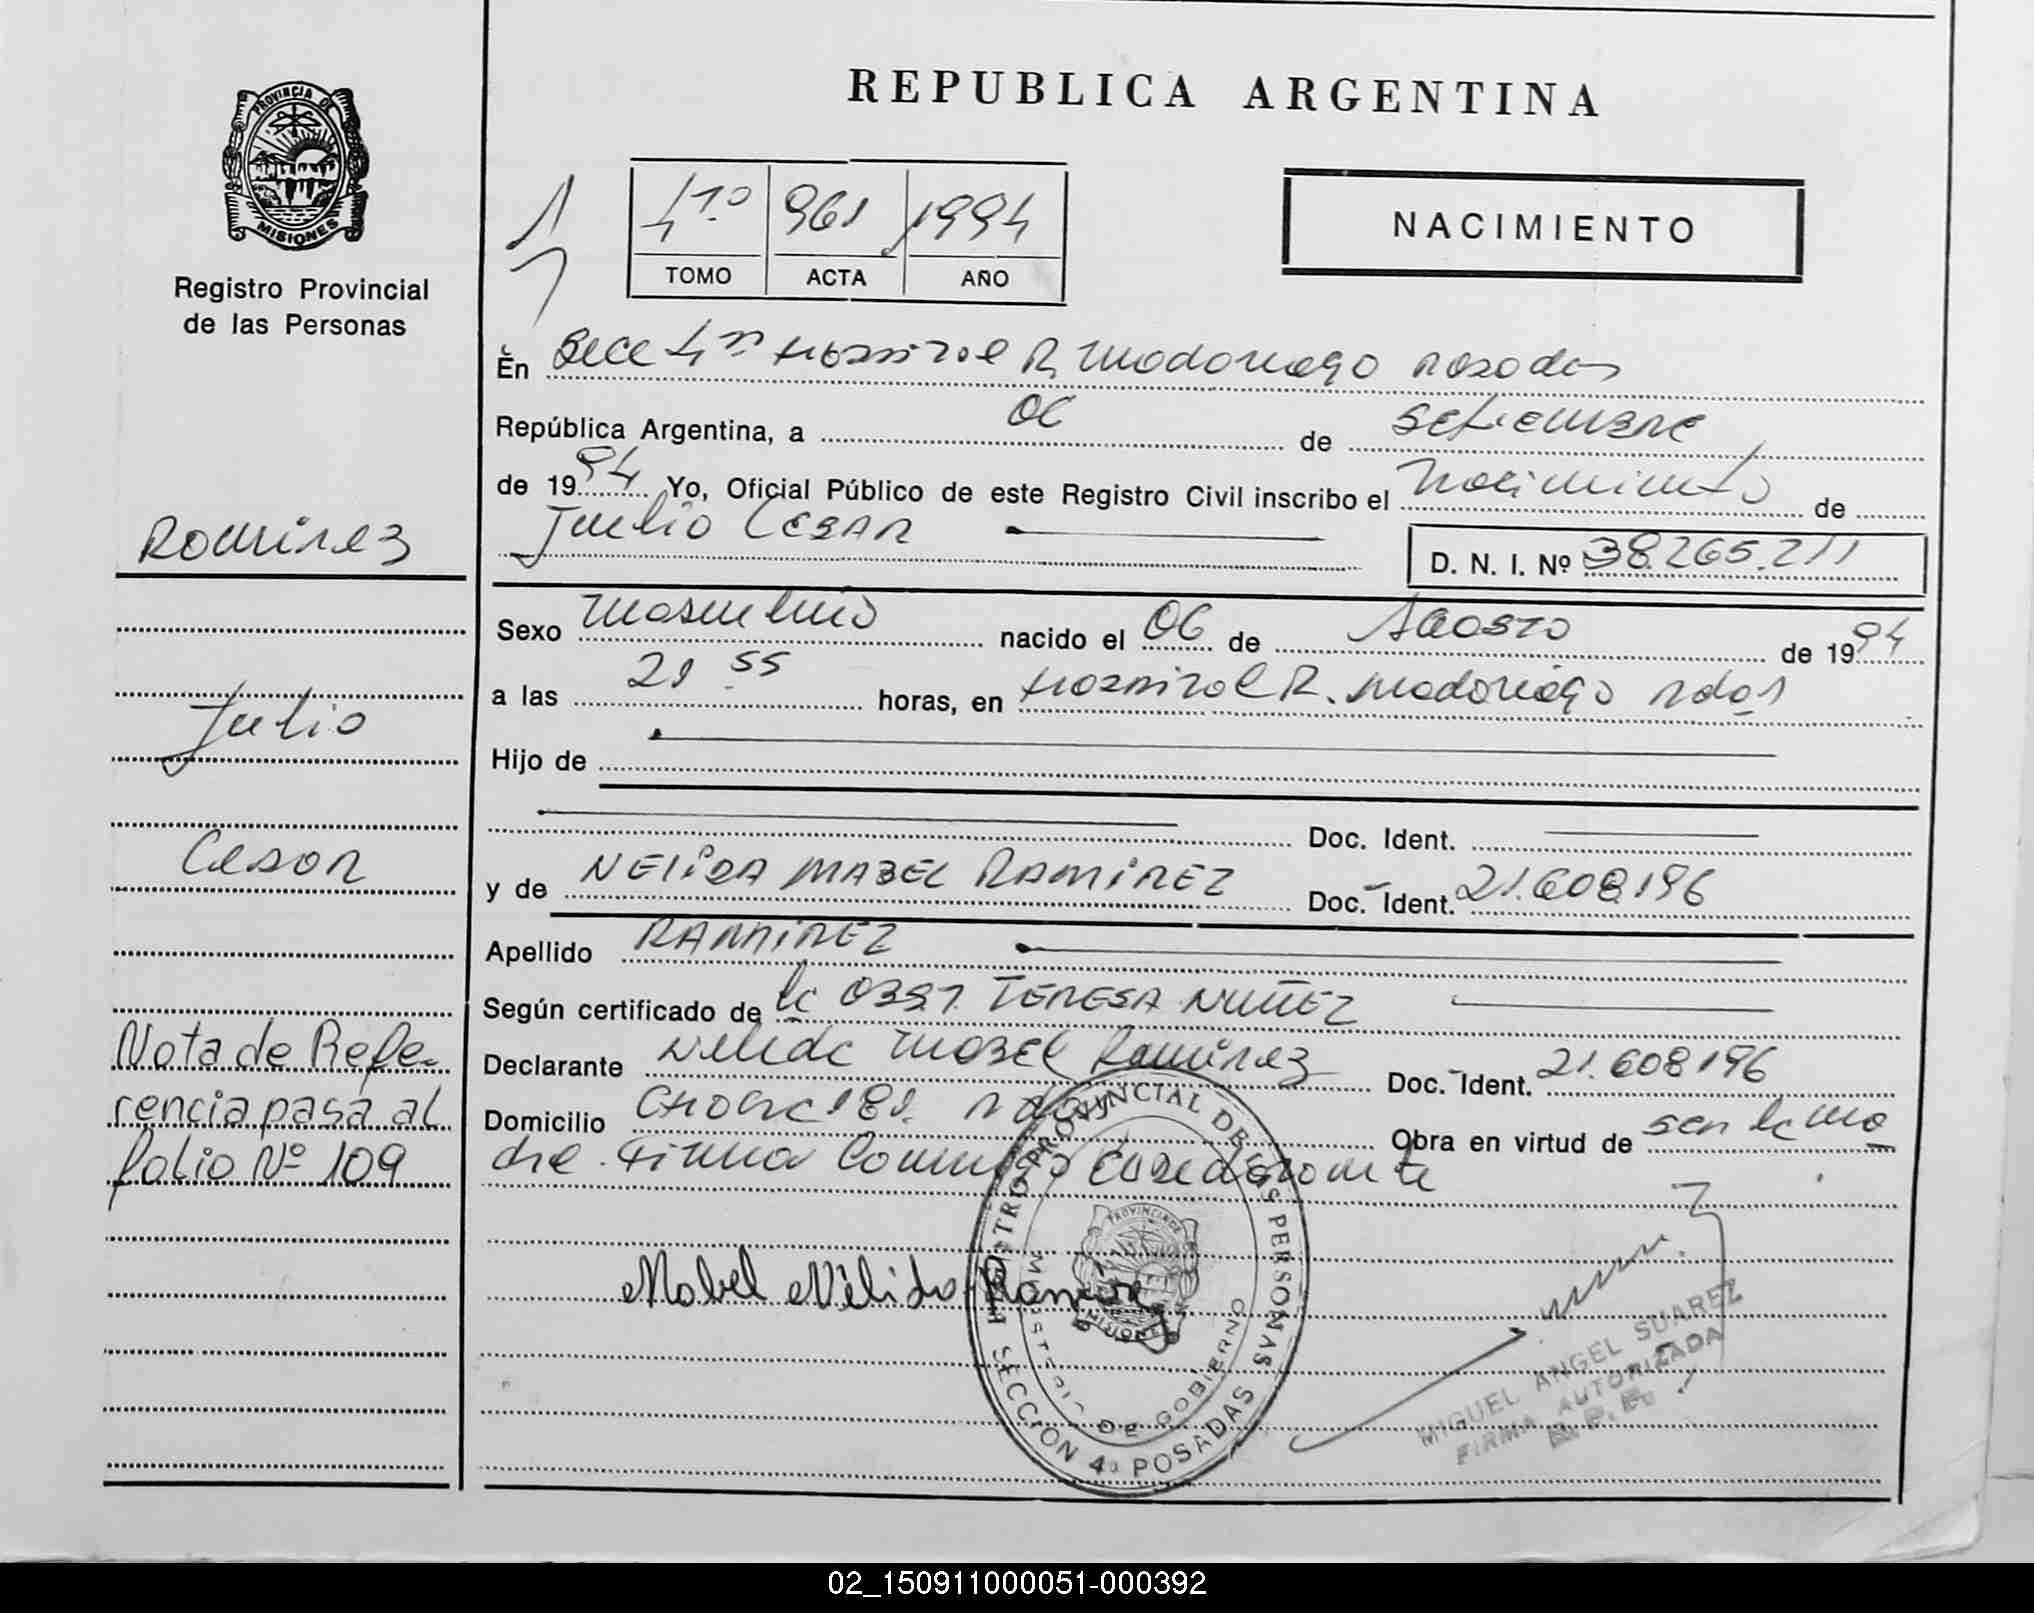 REPUBLICA ARGENTINA
PROVINCIA DE
MISIONES
Registro Provincial
de las Personas
4to 961 1994
TOMO ACTA AÑO
NACIMIENTO
En Secc 4ta Hospital R Madariaga Posadas
República Argentina, a 06 de Setiembre
de 1994 Yo, Oficial Público de este Registro Civil inscribo el Nacimiento de
Julio CESAR
D. N. I. Nº 38.265.211
Ramirez
Julio
Cesar
Nota de Refe-
rencia pasa al
folio Nº 109
Sexo Masculino nacido el 06 de Agosto de 1994
a las 21 55 horas, en Hospital R. Madariaga Pdas
Hijo de
Doc. Ident.
y de NELIDA MABEL RAMIREZ Doc. Ident. 21.608.196
Apellido RAMIREZ
Según certificado de la OBST. TERESA NUÑEZ
Declarante Nelida Mabel Ramirez Doc. Ident. 21.608.196
Domicilio 181. Pdas Obra en virtud de ser la ma
dre. Firma Conmigo
Mabel Nélida Ramirez
REGISTRO PROVINCIAL DE LAS PERSONAS
MINISTERIO DE GOBIERNO
SECCION 4a POSADAS
PROVINCIA DE
MISIONES
MIGUEL ANGEL SUAREZ
FIRMA AUTORIZADA
R.P.P.
02_150911000051-000392